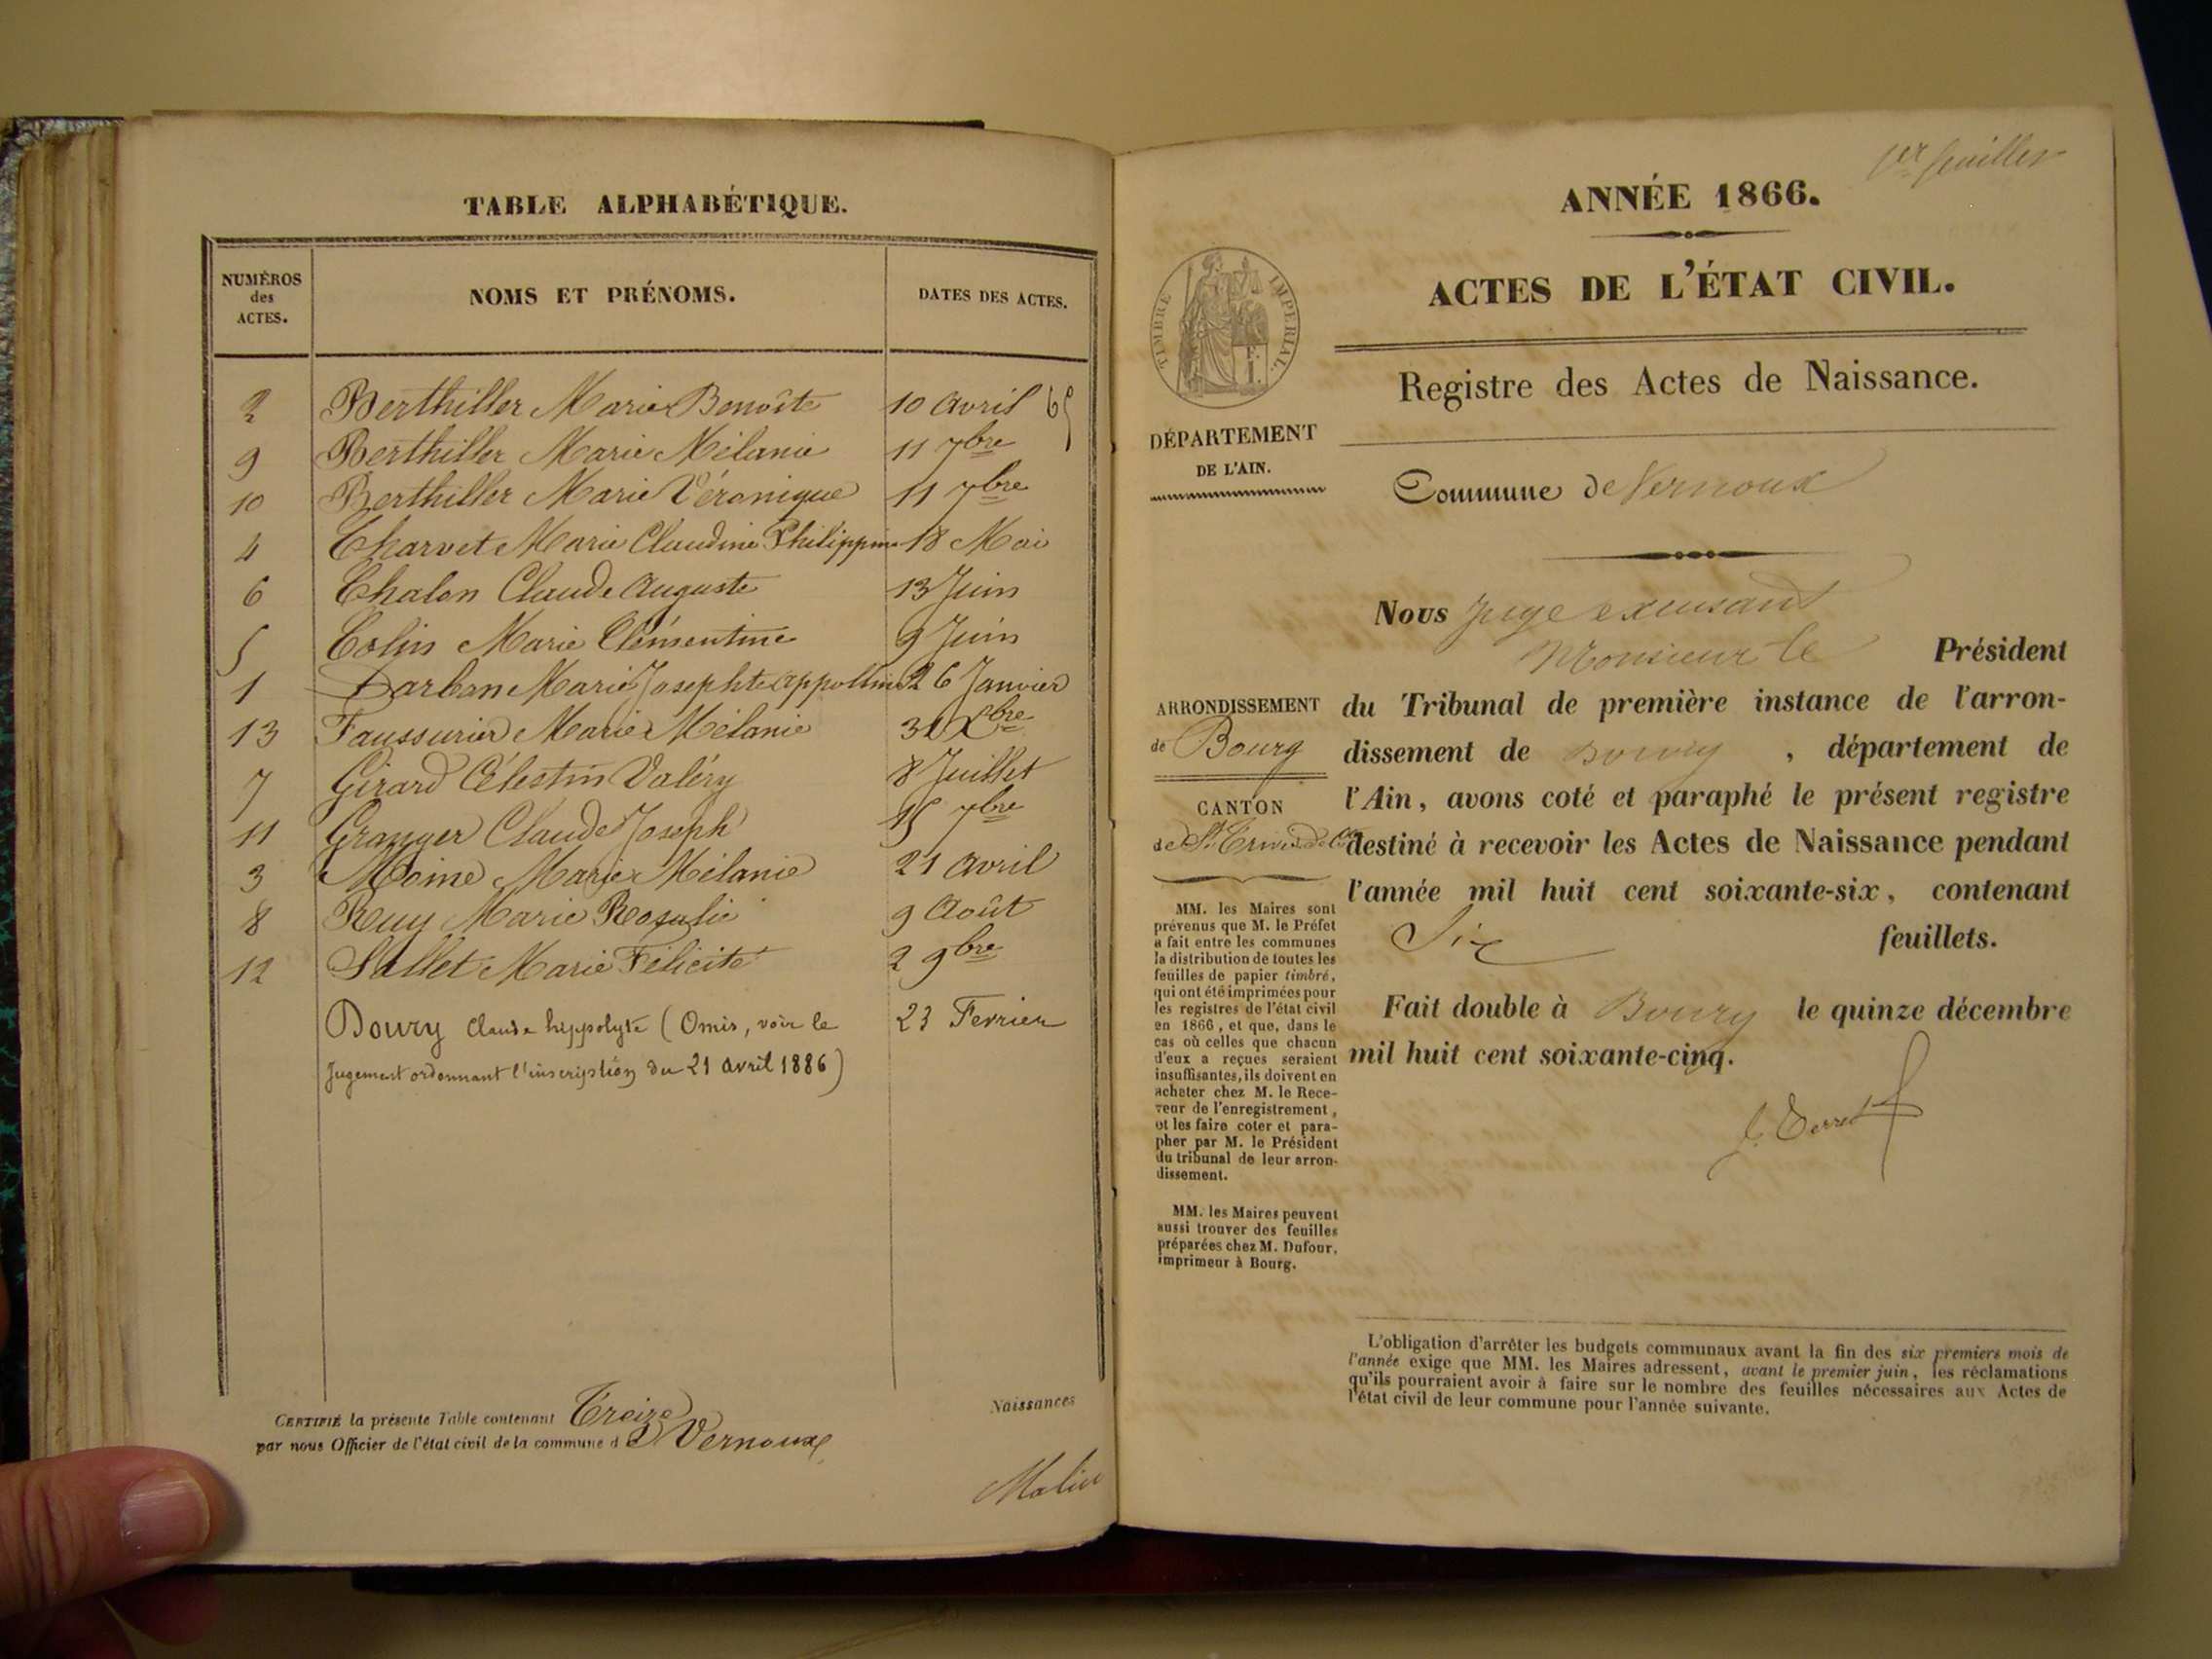 TABLE ALPHABÉTIQUE.
NUMÉROS des ACTES. NOMS ET PRÉNOMS. DATES DES ACTES.
2 Berthiller Marie Benoîte 10 avril 65
9 Berthiller Marie Mélanie 11 7bre
10 Berthiller Marie Véronique 11 7bre
4 Charvet Marie Claudine Philippine 18 Mai
6 Chalon Claude Auguste 13 Juin
5 Colin Marie Clémentine 9 Juin
1 Darban Marie Josephte appoline 26 Janvier
13 Faussurier Marie Mélanie 31 Xbre
7 Girard Célestin Valéry 8 Juillet
11 Granger Claude Joseph 15 7bre
3 Moine Marie Mélanie 21 avril
8 Ruy Marie Rosalie 9 Août
12 Sallet Marie Félicité 2 9bre
Doury Claude hippolyte (Omis, voir le 23 Fevrier
Jugement ordonnant l'inscription du 21 avril 1886)
CERTIFIÉ la présente Table contenant Treize Naissances
par nous Officier de l'état civil de la commune de Vernoux
1er feuillet
ANNÉE 1866.
ACTES DE L'ÉTAT CIVIL.
TIMBRE IMPERIAL.
Registre des Actes de Naissance.
DÉPARTEMENT
DE L'AIN.
Commune de Vernoux
Nous juge excusant
Monsieur le Président
ARRONDISSEMENT
de Bourg
CANTON
de St Trivier de
du Tribunal de première instance de l'arron-
dissement de Bourg, département de
l'Ain, avons coté et paraphé le présent registre
destiné à recevoir les Actes de Naissance pendant
l'année mil huit cent soixante-six, contenant
Six feuillets.
Fait double à Bourg le quinze décembre
mil huit cent soixante-cinq.
MM. les Maires sont
prévenus que M. le Préfet
a fait entre les communes
la distribution de toutes les
feuilles de papier timbré,
qui ont été imprimées pour
les registres de l'état civil
en 1866, et que, dans le
cas où celles que chacun
d'eux a reçues seraient
insuffisantes, ils doivent en
acheter chez M. le Rece-
veur de l'enregistrement,
et les faire coter et para-
pher par M. le Président
du tribunal de leur arron-
dissement.
MM. les Maires peuvent
aussi trouver des feuilles
préparées chez M. Dufour,
imprimeur à Bourg.
L'obligation d'arrêter les budgets communaux avant la fin des six premiers mois de
l'année exige que MM. les Maires adressent, avant le premier juin, les réclamations
qu'ils pourraient avoir à faire sur le nombre des feuilles nécessaires aux Actes de
l'état civil de leur commune pour l'année suivante.